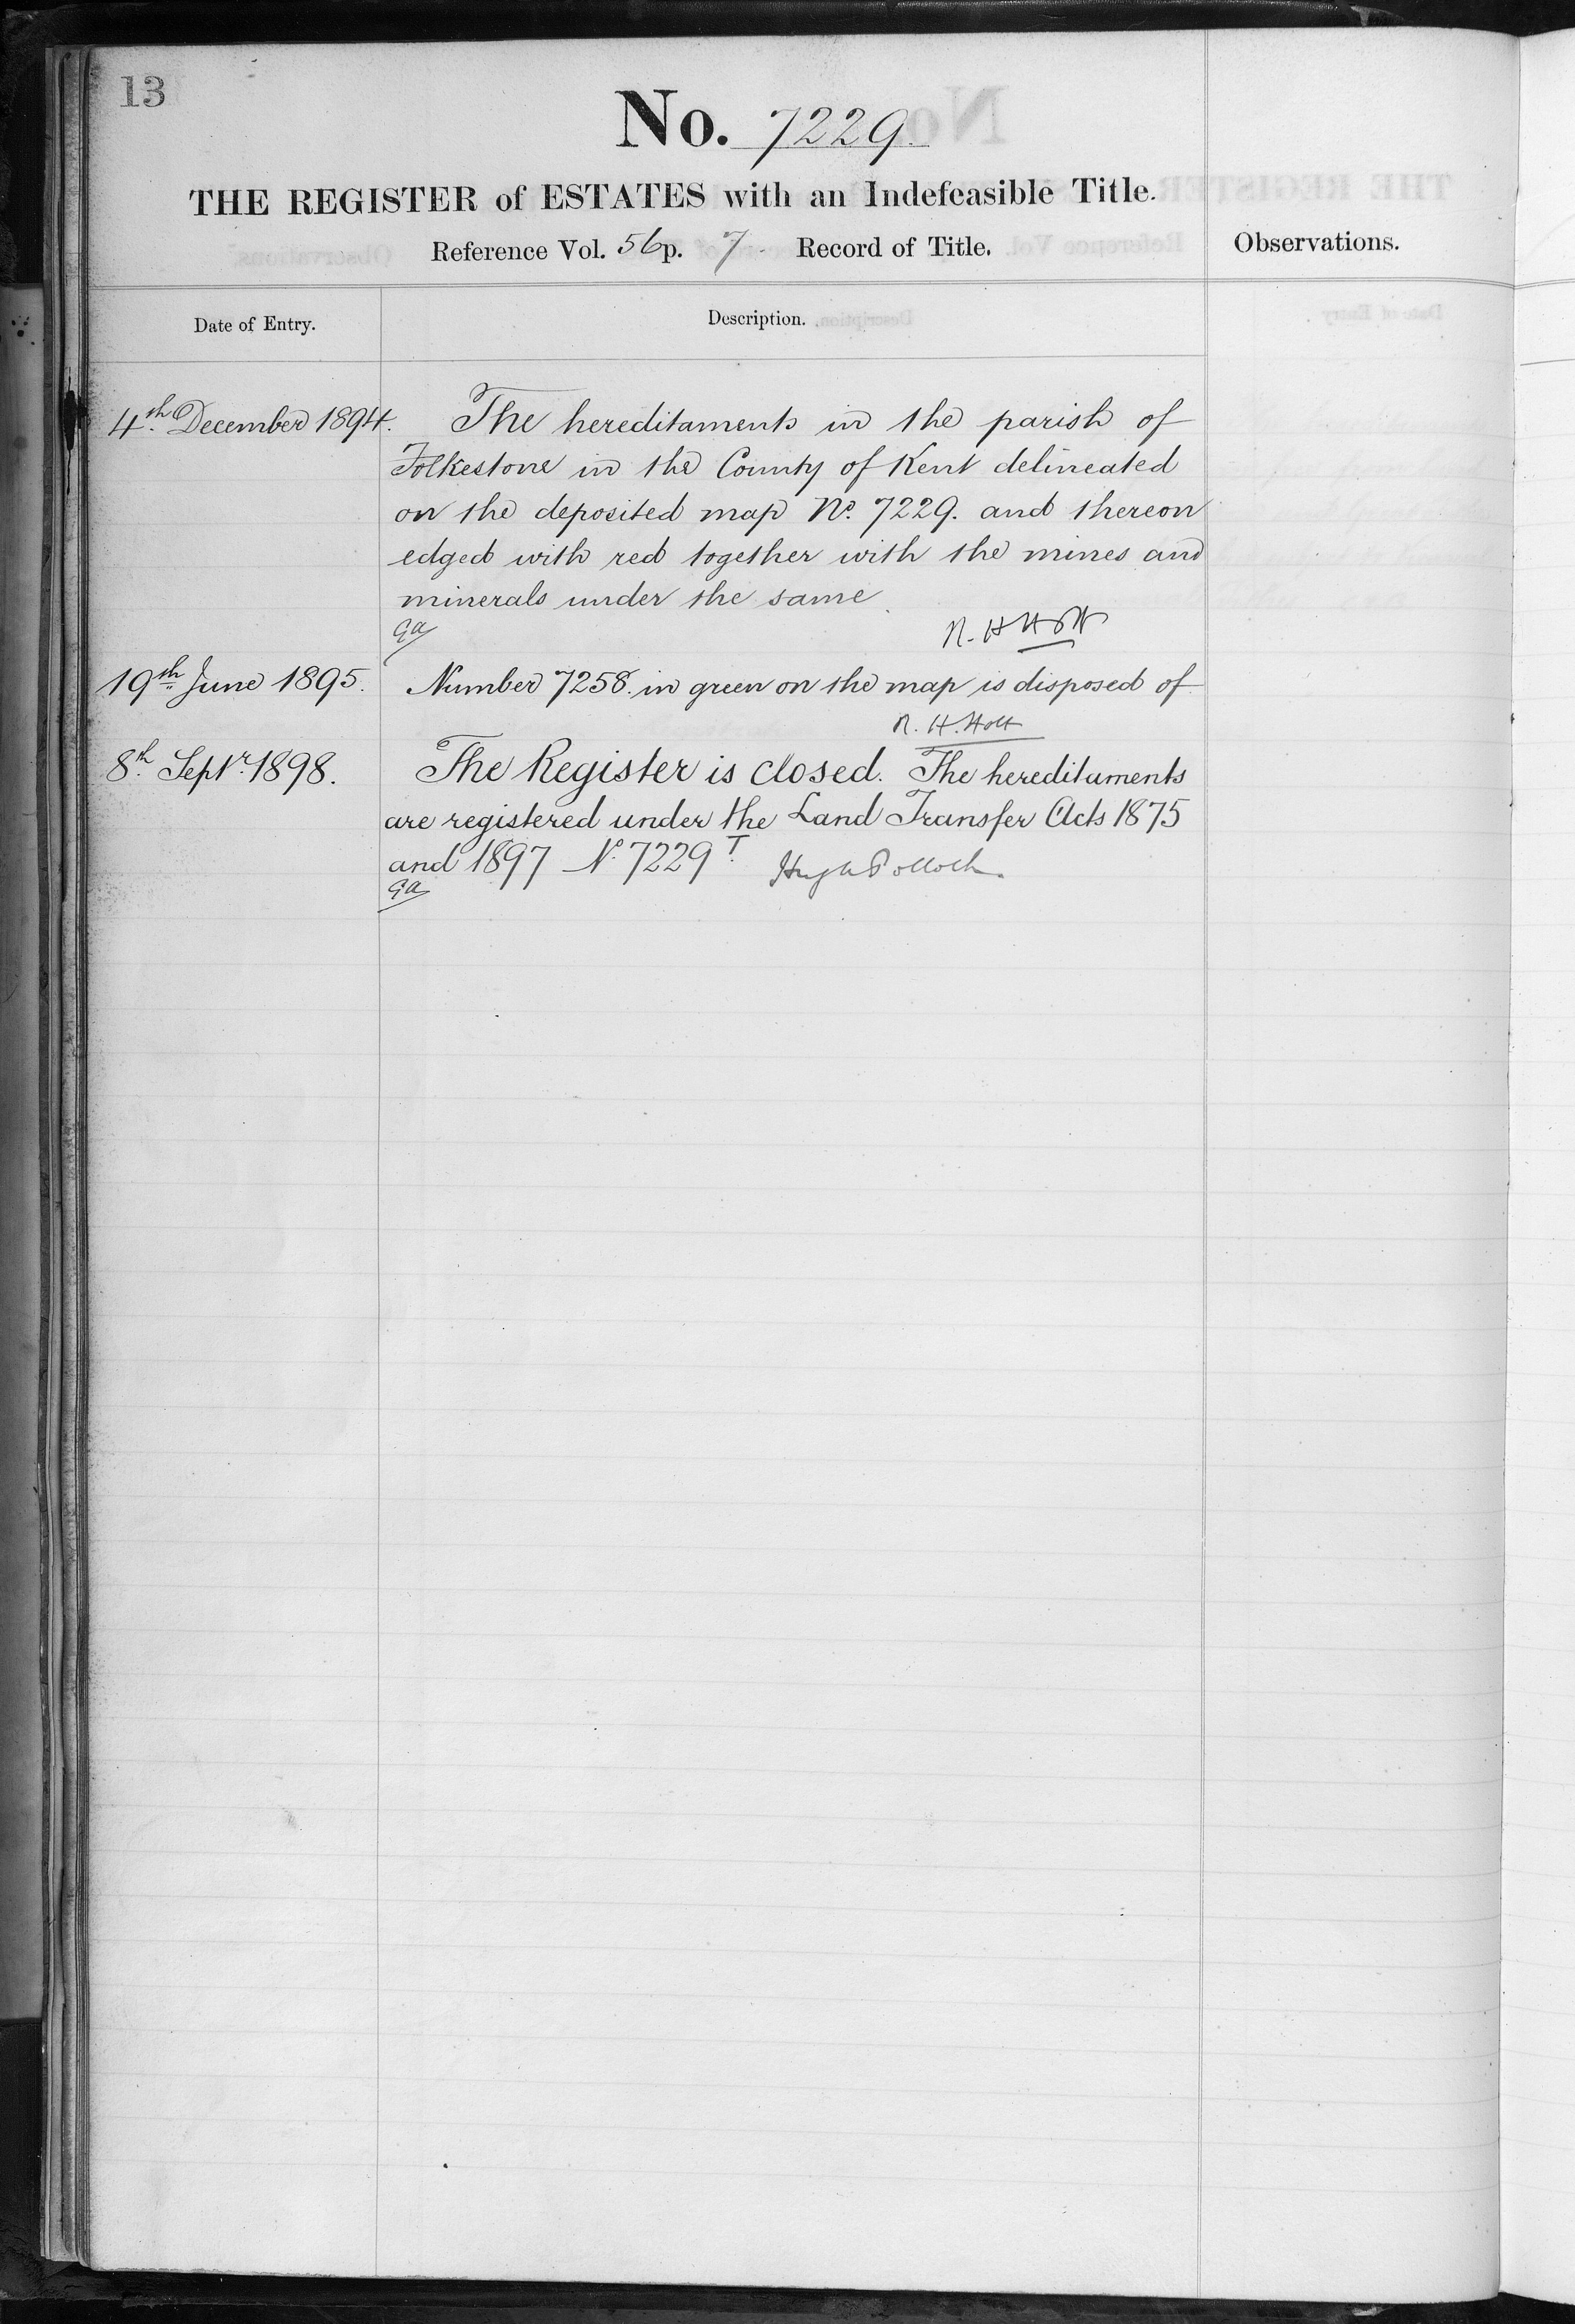 13
No. 7229.
THE REGISTER of ESTATES with an Indefeasible Title.
Reference Vol. 56 p. 7. Record of Title.
Observations.
Date of Entry.
Description.
4th December 1894. The hereditaments in the parish of
Folkestone in the County of Kent delineated
on the deposited map No. 7229. and thereon
edged with red together with the mines and
minerals under the same
Ga R. H Holt
19th June 1895. Number 7258. in green on the map is disposed of
R. H. Holt
8th Septr. 1898. The Register is closed. The hereditaments
are registered under the Land Transfer Acts 1875
and 1897 No. 7229 T. Hugh Pollock.
Ga